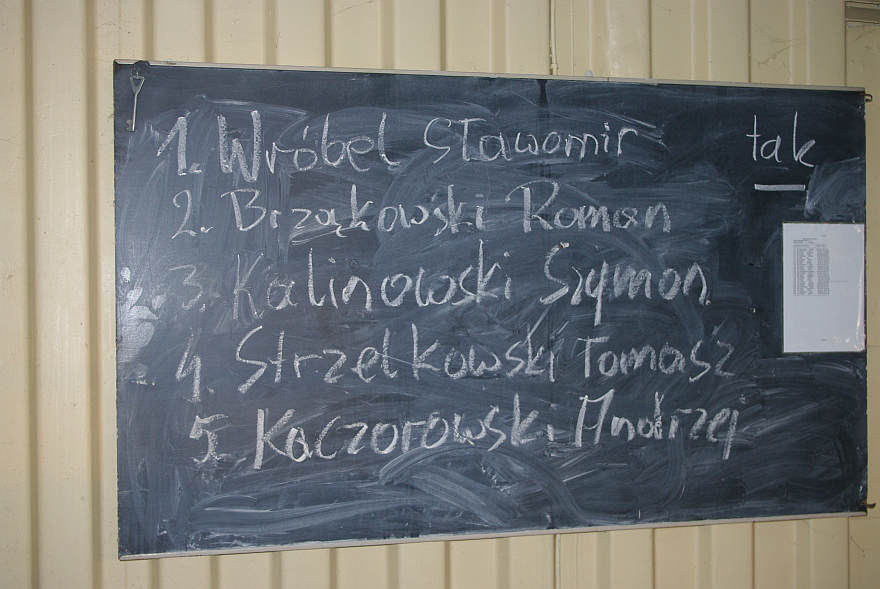 1. Wróbel Sławomir tak
2. Brząkowski Roman
3. Kalinowski Szymon
4. Strzelkowski Tomasz
5. Kaczorowski Andrzej